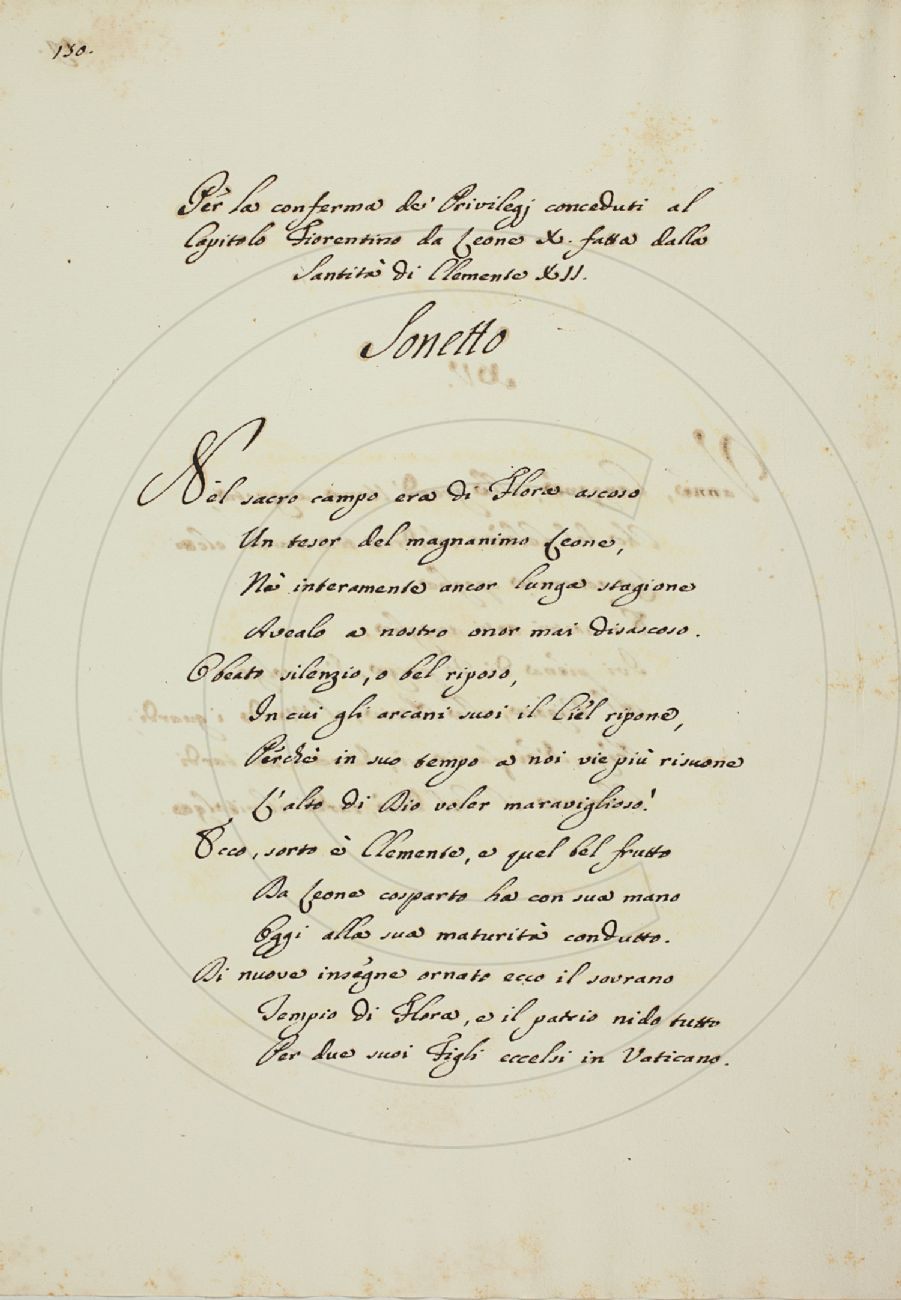 130.
Per la conferma de' Privilegj conceduti al
Capitolo Fiorentino da Leone X. fatta dalla
Santità di Clemente XII.
Sonetto
Nel sacro campo era di Flora ascoso
Un tesor del magnanimo Leone,
Nè interamente ancor lunga stagione
Avealo a nostro onor mai disascoso.
O beato silenzio, o bel riposo,
In cui gli arcani suoi il Ciel ripone,
Perchè in suo tempo a noi vie più risuone
L'alto di Dio voler maraviglioso!
Ecco, sorto è Clemente, e quel bel frutto
Da Leone cosparto ha con sua mano
Oggi alla sua maturità condutto.
Di nuove insegne ornato ecco il sovrano
Tempio di Flora, e il patrio nido tutto
Per due suoi Figli eccelsi in Vaticano.